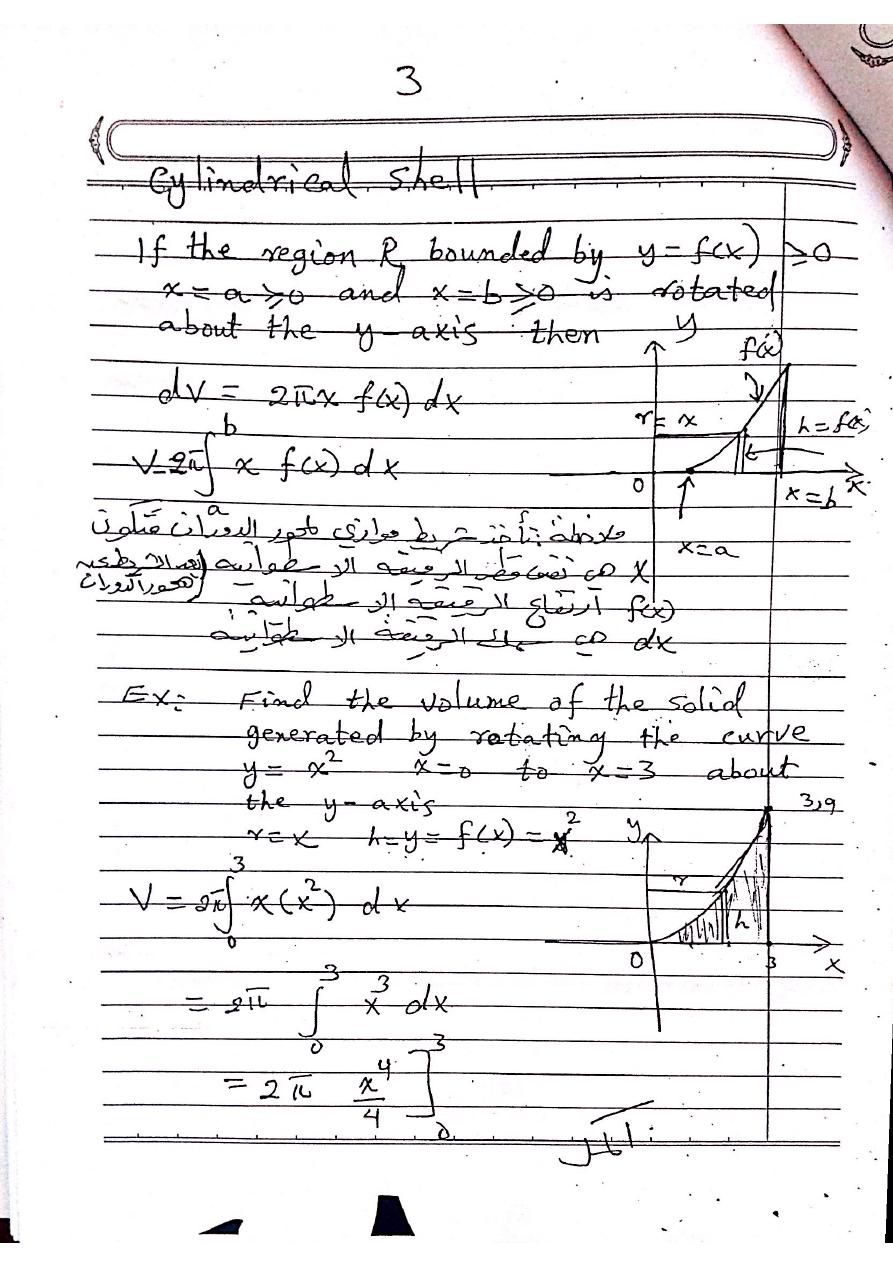 3
Cylindrical shell
If the region R bounded by y = f(x) ≥ 0
x = a ≥ 0 and x = b ≥ 0 is rotated
about the y-axis then
dV = 2πx f(x) dx
V = 2π∫ₐᵇ x f(x) dx
y
f(x)
r = x
h = f(x)
t
0
x = a
x = b
x
ملاحظة: نأخذ شريط موازي لمحور الدوران فتكون
x هي الرقيقة الاسطوانية
f(x) أرتفاع الرقيقة الاسطوانية
dx هي سمك الرقيقة الاسطوانية
Ex: Find the volume of the solid
generated by rotating the curve
y = x² x=0 to x=3 about
the y-axis
r = x h = y = f(x) = x²
3,9
y
r
h
0
3
x
V = 2π∫₀³ x(x²) dx
= 2π ∫₀³ x³ dx
= 2π x⁴/4 ]₀³